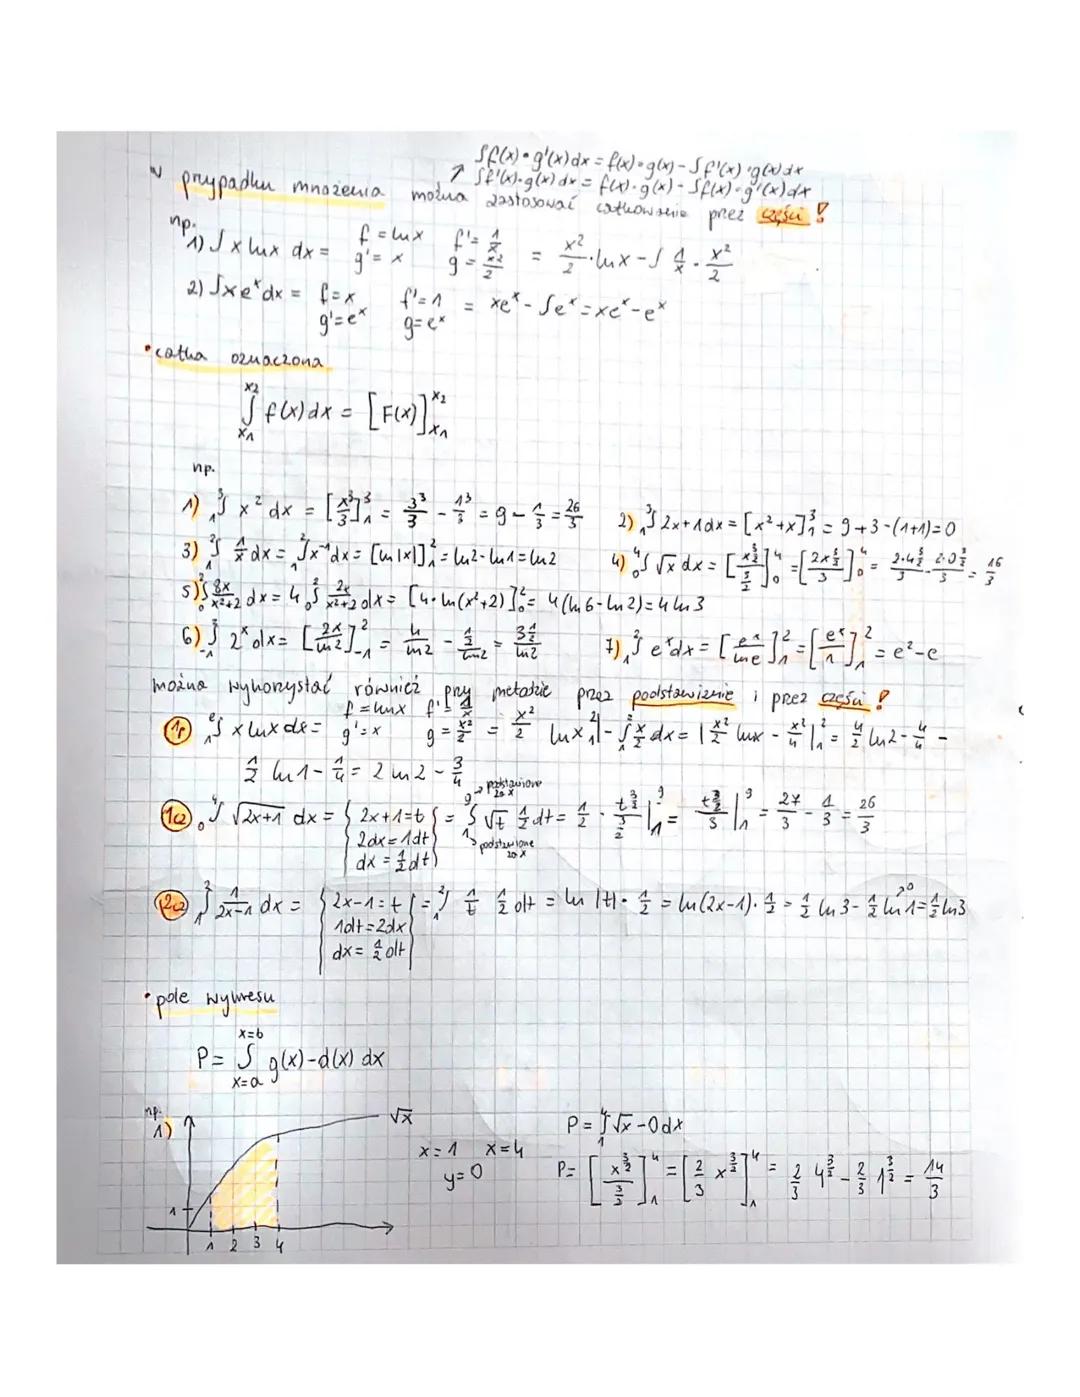 ∫f(x)•g'(x)dx = f(x)•g(x) - ∫f'(x)•g(x)dx
↗ ∫f'(x)•g(x)dx = f(x)•g(x) - ∫f(x)•g'(x)dx
w przypadku mnożenia można zastosować całkowanie przez części!
np.
1) ∫x lnx dx = f = lnx f' = 1/x g' = x g = x²/2 = x²/2 · lnx - ∫ 1/x · x²/2
2) ∫xeˣdx = f=x f'=1 g'=eˣ g=eˣ = xeˣ - ∫eˣ = xeˣ - eˣ
• całka oznaczona
∫_{x₁}^{x₂} f(x)dx = [F(x)]_{x₁}^{x₂}
np.
1) ₁∫³ x² dx = [x³/3]₁³ = 3³/3 - 1³/3 = 9 - 1/3 = 26/3
2) ₁∫³ 2x+1dx = [x²+x]₁³ = 9+3-(1+1)=0
3) ₁∫² 1/x dx = ₁∫²x⁻¹dx = [ln|x|]₁² = ln2-ln1=ln2
4) ₀∫⁴ √x dx = [x^{3/2}/(3/2)]₀⁴ = [2x^{3/2}/3]₀⁴ = 2·4^{3/2}/3 - 2·0^{3/2}/3 = 16/3
5) ₀∫² 8x/(x²+2) dx = 4 ₀∫² 2x/(x²+2) dx = [4·ln(x²+2)]₀² = 4(ln6-ln2)=4ln3
6) ₋₁∫² 2ˣ dx = [2ˣ/ln2]₋₁² = 4/ln2 - (1/2)/ln2 = 3½/ln2
7) ₁∫² eˣdx = [eˣ/lne]₁² = [eˣ/1]₁² = e²-e
można wykorzystać również przy metodzie przez podstawienie i przez części!
f = lnx f' = 1/x
1p ₁∫ᵉ x lnx dx = g' = x g = x²/2 = x²/2 lnx ₁|² - ₁∫² x/2 dx = |x²/2 lnx - x²/4|₁² = 4/2 ln2 - 4/4 -
1/2 ln1 - 1/4 = 2 ln2 - 3/4
→ podstawione za x
1cz ₀∫⁴ √(2x+1) dx = {2x+1=t} = ₁∫⁹ √t 1/2 dt = 1/2 · t^{3/2}/(3/2) |₁⁹ = t^{3/2}/3 |₁⁹ = 27/3 - 1/3 = 26/3
2dx=1dt
podstawione za x
dx = 1/2 dt
2cz ₁∫² 1/(2x-1) dx = {2x-1=t} = ₁∫² 1/t 1/2 dt = ln|t| · 1/2 = ln(2x-1)·1/2 = 1/2 ln3 - 1/2 ln1 ↗0 = 1/2 ln3
1dt=2dx
dx = 1/2 dt
• pole wykresu
P = ∫_{x=a}^{x=b} g(x)-d(x) dx
np.
1)
√x
x=1 x=4
y=0
P = ₁∫⁴ √x - 0dx
P = [x^{3/2}/(3/2)]₁⁴ = [2/3 x^{3/2}]₁⁴ = 2/3 4^{3/2} - 2/3 1^{3/2} = 14/3
1
1 2 3 4